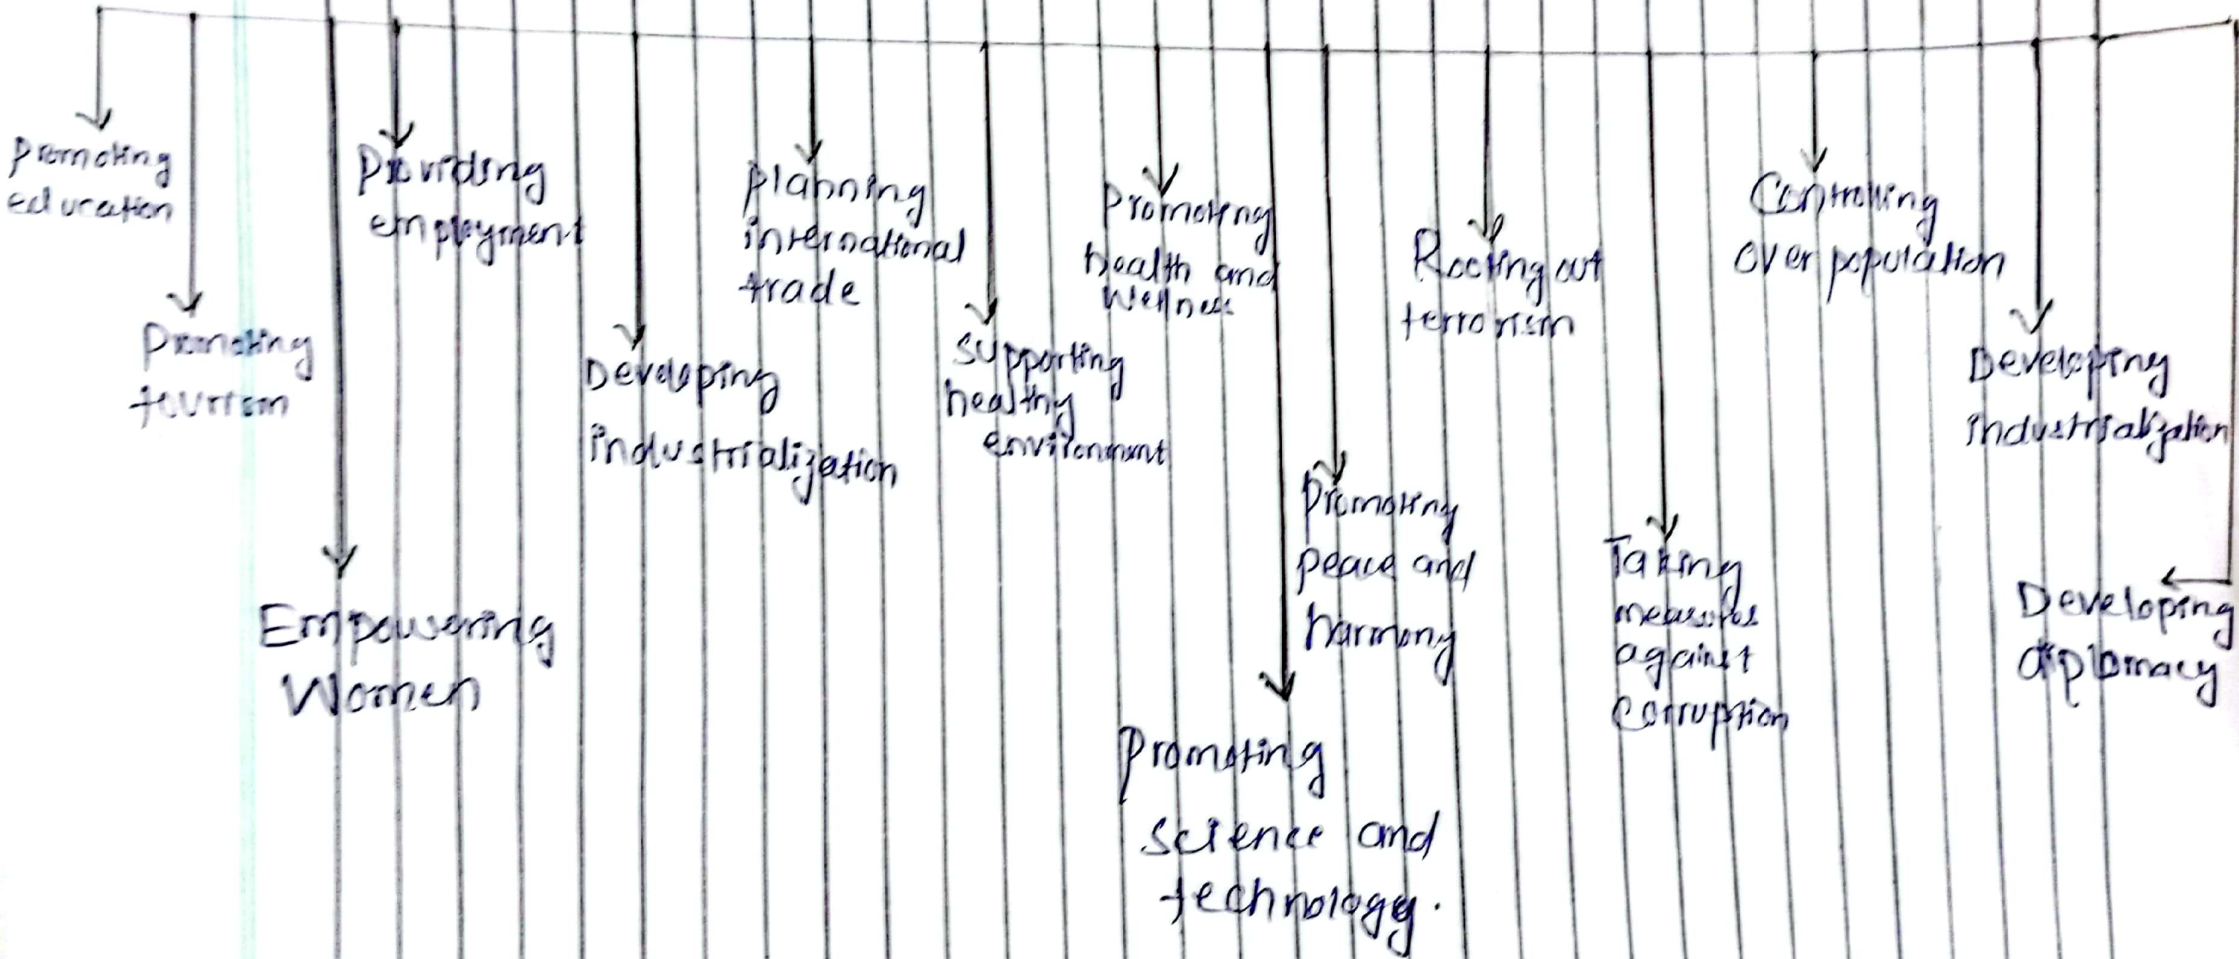 Promoting
education
Promoting
tourism
Empowering
Women
Providing
employment
Developing
industrialization
planning
international
trade
supporting
healthy
environment
promoting
health and
wellness
promoting
science and
technology.
promoting
peace and
harmony
Rooting out
terrorism
Taking
measures
against
corruption
Controlling
over population
Developing
industrialization
Developing
diplomacy